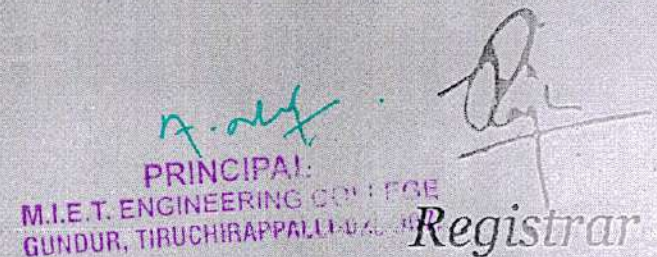 PRINCIPAL
M.I.E.T. ENGINEERING COLLEGE
GUNDUR, TIRUCHIRAPPALLI
Registrar